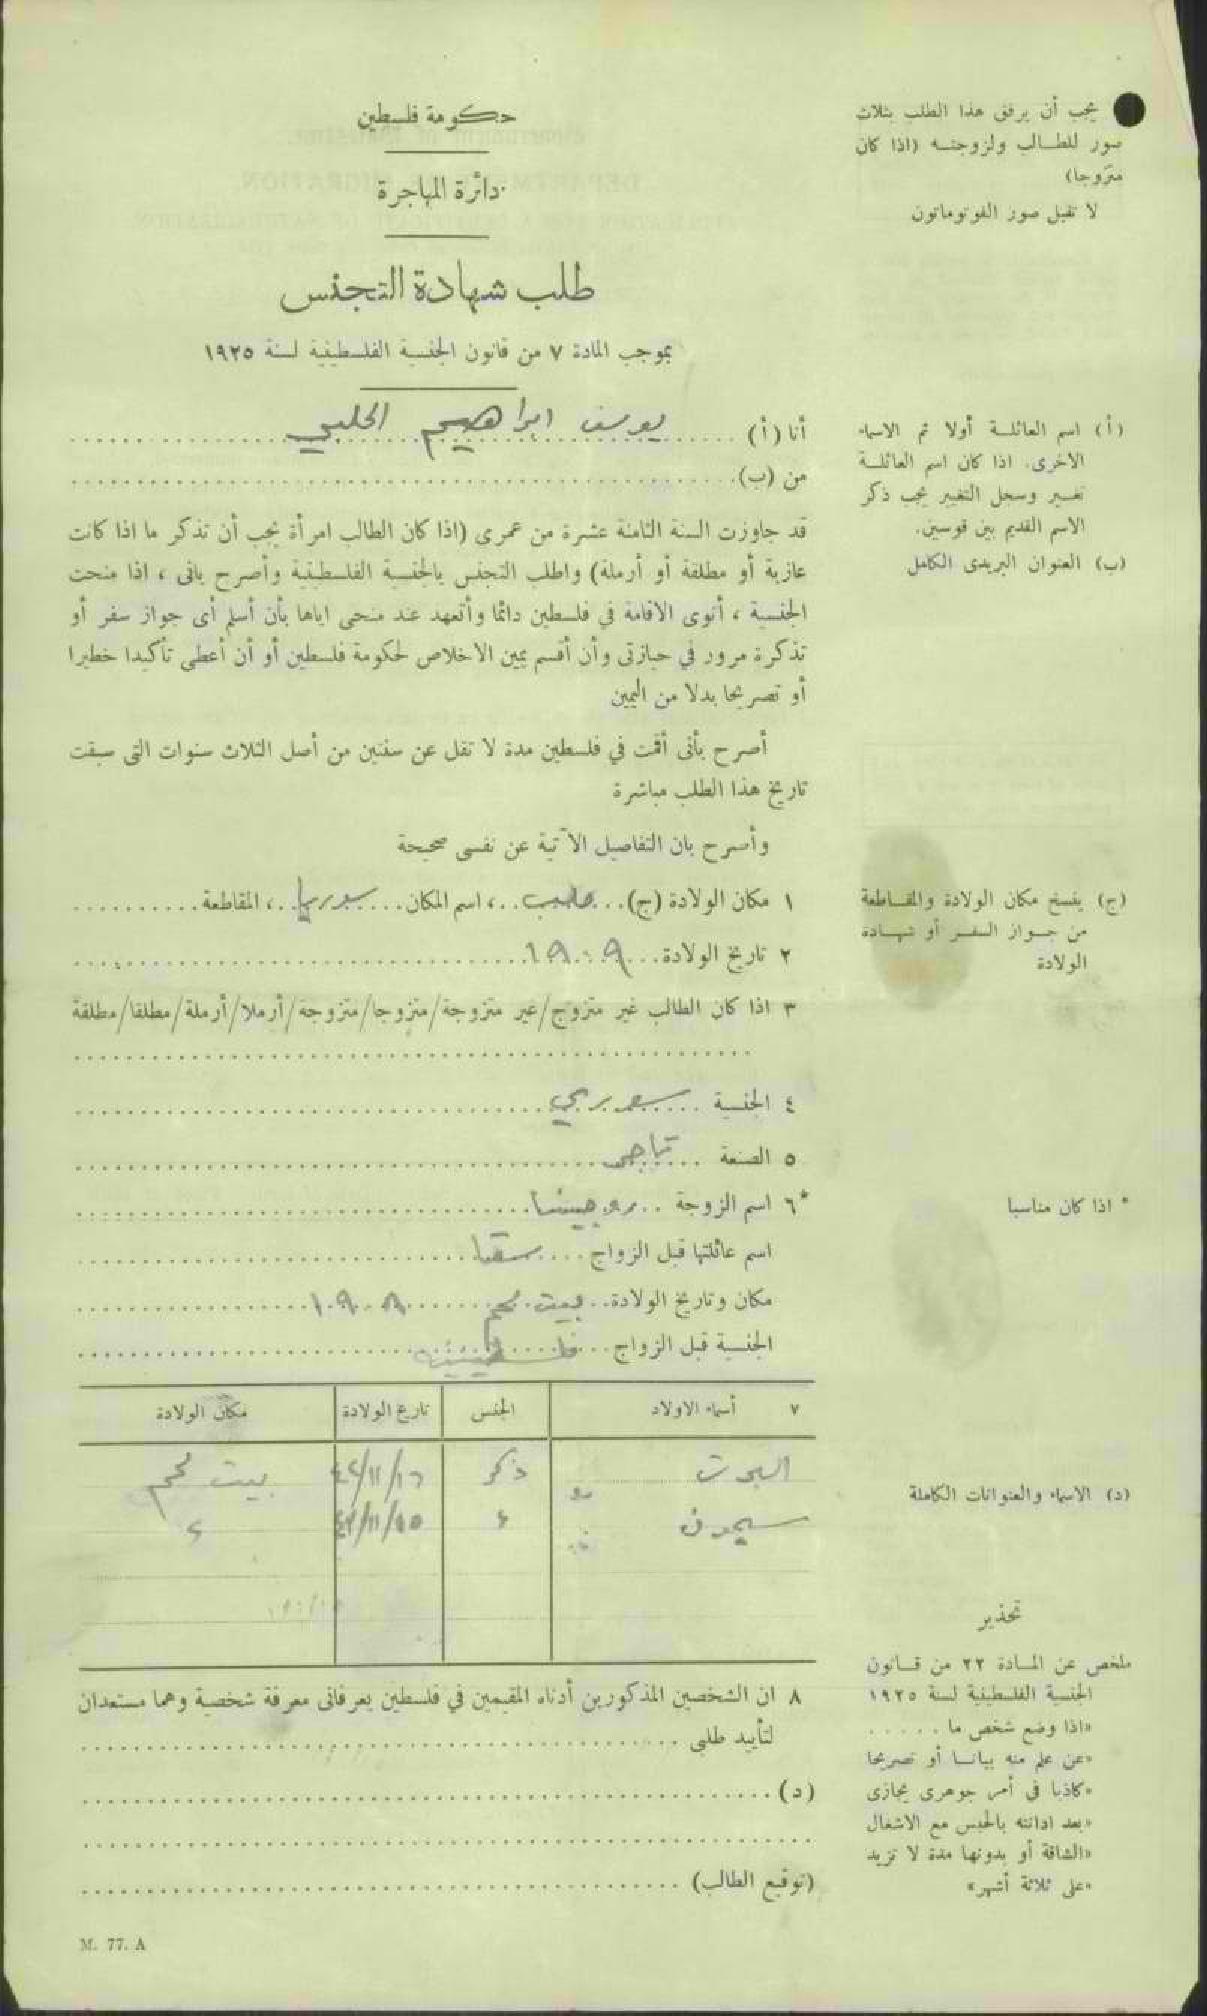 حكومة فلسطين
دائرة المهاجرة
طلب شهادة التجنس
بموجب المادة ٧ من قانون الجنسية الفلسطينية لسنة ١٩٢٥
يجب أن يرفق هذا الطلب بثلاث
صور للطالب ولزوجته (اذا كان
متزوجا)
لا تقبل صور الفوتوماتون
أنا (أ) يوسف ابراهيم الحلبي
من (ب)
(أ) اسم العائلة أولا ثم الاسماء
الاخرى. اذا كان اسم العائلة
تغير وسجل التغيير يجب ذكر
الاسم القديم بين قوسين.
(ب) العنوان البريدى الكامل
قد جاوزت السنة الثامنة عشرة من عمرى (اذا كان الطالب امرأة يجب أن تذكر ما اذا كانت
عازبة أو مطلقة أو أرملة) واطلب التجنس بالجنسية الفلسطينية وأصرح بانى ، اذا منحت
الجنسية ، أنوى الاقامة في فلسطين دائما وأتعهد عند منحى اياها بأن أسلم أى جواز سفر أو
تذكرة مرور في حيازتى وأن أقسم يمين الاخلاص لحكومة فلسطين أو أن أعطى تأكيدا خطيرا
أو تصريحا بدلا من اليمين
أصرح بأنى أقمت في فلسطين مدة لا تقل عن سنتين من أصل الثلاث سنوات التى سبقت
تاريخ هذا الطلب مباشرة
وأصرح بان التفاصيل الآتية عن نفسى صحيحة
١ مكان الولادة (ج) حلب ، اسم المكان سوريا ، المقاطعة
(ج) ينسخ مكان الولادة والمقاطعة
من جواز السفر أو شهادة
الولادة
٢ تاريخ الولادة ١٩٠٩
٣ اذا كان الطالب غير متزوج/غير متزوجة/متزوجا/متزوجة/أرملا/أرملة/مطلقا/مطلقة
٤ الجنسية سوري
٥ الصنعة تاجر
*٦ اسم الزوجة
* اذا كان مناسبا
اسم عائلتها قبل الزواج سقا
مكان وتاريخ الولادة بيت لحم ١٩٠٨
الجنسية قبل الزواج فلسطينيه
٧ أسماء الاولاد الجنس تاريخ الولادة مكان الولادة
البرت ذكر ٤٢/١١/١٦ بيت لحم
سيمون ″ ″
(د) الاسماء والعنوانات الكاملة
٨ ان الشخصين المذكورين أدناه المقيمين في فلسطين يعرفانى معرفة شخصية وهما مستعدان
لتأييد طلبى
(د)
(توقيع الطالب)
تحذير
ملخص عن المادة ٢٢ من قانون
الجنسية الفلسطينية لسنة ١٩٢٥
«اذا وضع شخص ما . . . . .
«عن علم منه بيانا أو تصريحا
«كاذبا في أمر جوهرى يجازى
«بعد ادانته بالحبس مع الاشغال
«الشاقة أو بدونها مدة لا تزيد
«على ثلاثة أشهر»
M. 77. A